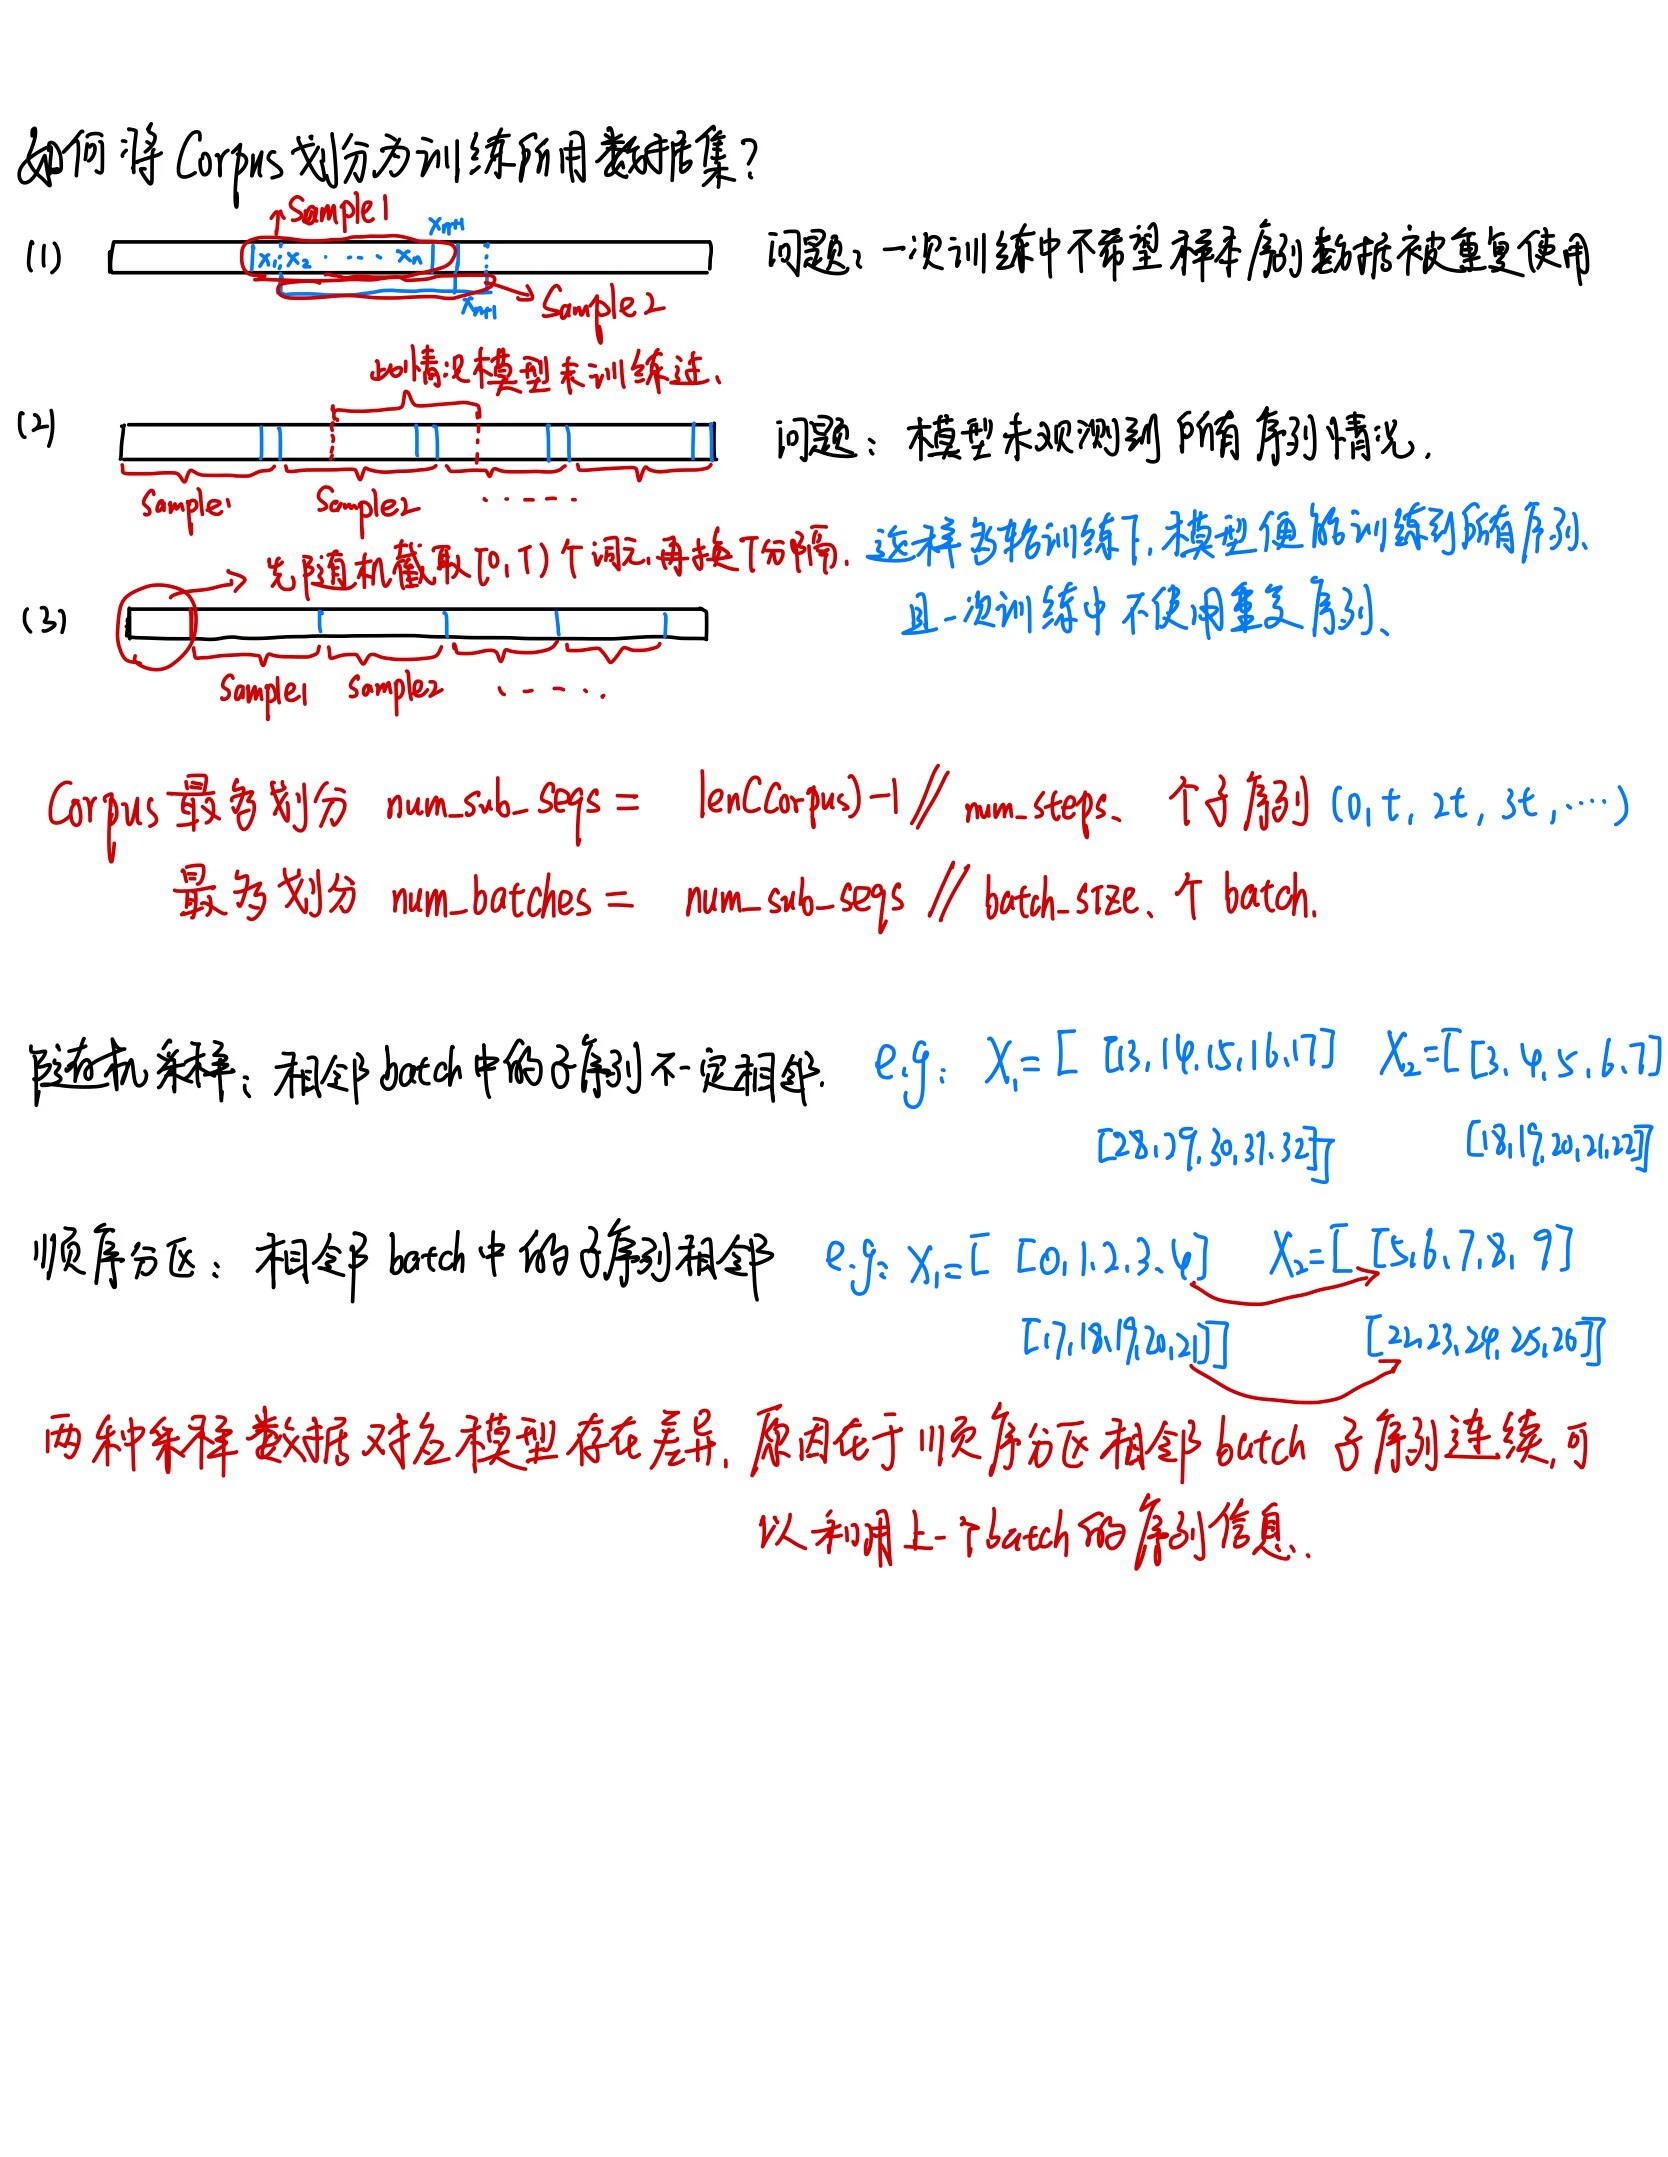 如何将 Corpus 划分为训练所用数据集?
Sample1
(1)
x₁ x₂ ····· xₙ
xₙ₊₁
xₙ₊₁
Sample2
问题:一次训练中不希望样本序列数据被重复使用
此情况模型未训练过、
(2)
问题:模型未观测到所有序列情况.
Sample1 Sample2 ······
先随机截取[0,T)个词元.再按T分隔.
这样多轮训练下,模型便能训练到所有序列、
且一次训练中不使用重复序列、
(3)
Sample1 Sample2 ······
Corpus 最多划分 num_sub_seqs = len(Corpus)-1 // num_steps、 个子序列 (0, t, 2t, 3t, ····)
最多划分 num_batches = num_sub_seqs // batch_size、个 batch.
随机采样:相邻 batch 中的子序列不一定相邻. e.g: X₁=[ [13,14,15,16,17] X₂=[[3,4,5,6,7]
[28,29,30,31,32]] [18,19,20,21,22]]
顺序分区:相邻 batch 中的子序列相邻 e.g: X₁=[ [0,1,2,3,4] X₂=[ [5,6,7,8,9]
[17,18,19,20,21]] [22,23,24,25,26]]
两种采样数据对应模型存在差异,原因在于顺序分区相邻 batch 子序列连续,可
以利用上一个batch的序列信息.